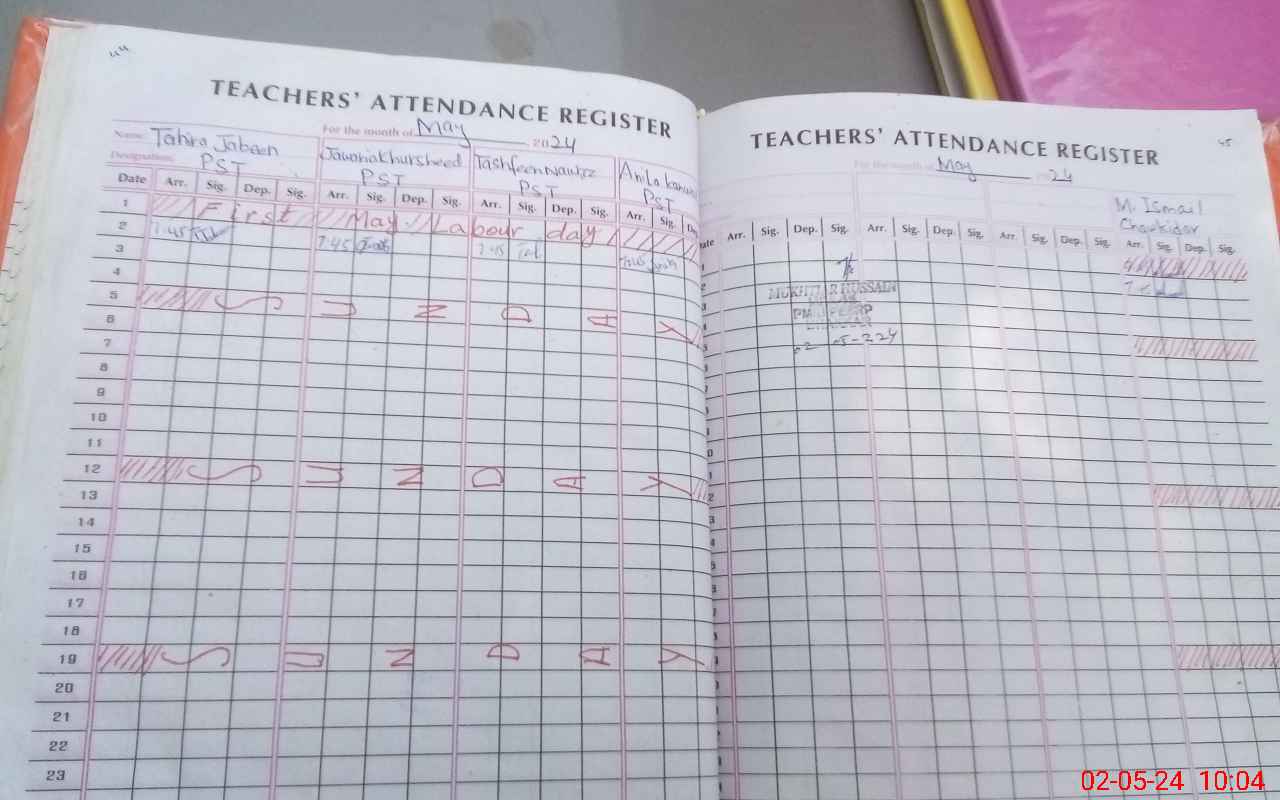 44
TEACHERS' ATTENDANCE REGISTER
For the month of May 2024
Name Tahira Jabeen
Designation PST
Jawaria Khursheed
PST
Tashfeen Nawaz
PST
Anila
PST
Date Arr. Sig. Dep. Sig. Arr. Sig. Dep. Sig. Arr. Sig. Dep. Sig. Arr. Sig. Dep
1 First May Labour day
2 7:45 7:45 7:45 7:45
3
4
5 SUNDAY
6
7
8
9
10
11
12 SUNDAY
13
14
15
16
17
18
19 SUNDAY
20
21
22
23
45
TEACHERS' ATTENDANCE REGISTER
For the month of May 2024
M. Ismail
Chowkidar
Arr. Sig. Dep. Sig. Arr. Sig. Dep. Sig. Arr. Sig. Dep. Sig. Arr. Sig. Dep. Sig.
MUKHTIAR HUSSAIN
02-05-224
02-05-24 10:04